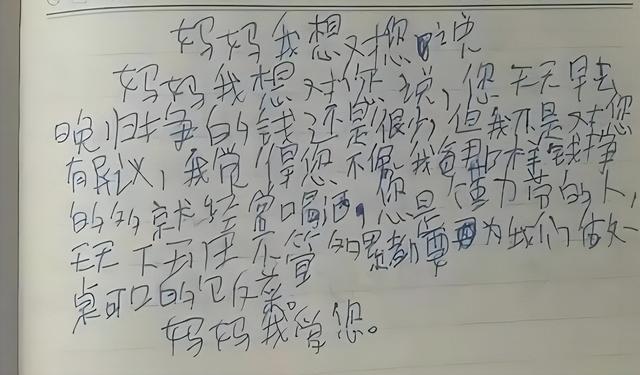 妈妈我想对您说
妈妈我想对你说，您天天早去
晚归挣的钱还是很少但我不是对您
有民议，我觉得您不像我爸那样钱挣
的多就经常喝酒，您是懂力劳的人，
天天下午在不管多累都要为我们做一
桌可口的饭菜。
妈妈我学您。